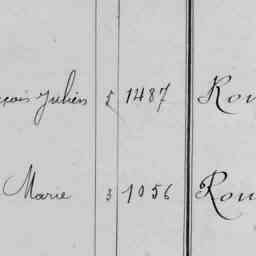 çois Julien 5 1487 Rou
Marie 3 1056 Rou